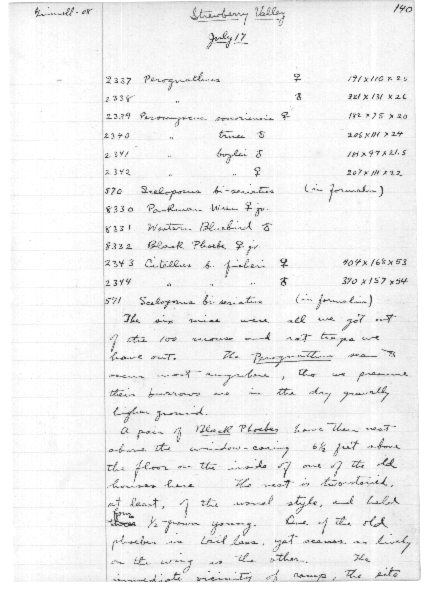 Grinnell-08
Strawberry Valley
140
July 17
2337 Perognathus ♀ 191 x 110 x 25
2338 " ♂ 221 x 131 x 26
2339 Peromyscus sonoriensis ♀ 182 x 75 x 20
2340 " truei ♂ 205 x 111 x 24
2341 " boylei ♂ 189 x 97 x 21.5
2342 " " ♀ 207 x 111 x 22
570 Sceloporus bi-seriatus (in formalin)
8330 Parkman Wren ♀ jv.
8331 Western Bluebird ♂
8332 Black Phoebe ♀ jv
2343 Citellus b. fisheri ♀ 404 x 165 x 53
2344 " " ♂ 390 x 157 x 54
571 Sceloporus bi seriatus (in formalin)
The six mice were all we got out
of the 100 mouse and rat traps we
have out. The Perognathus seem to
occur most anywhere, tho we presume
their burrows are in the dry gravelly
higher ground.
A pair of Black Phoebes have their nest
above the window-casing 6½ feet above
the floor on the inside of one of the old
houses here. The nest is two-storied,
at least, of the usual style, and held
four ½ grown young. One of the old
phoebes is tail less, yet seems as lively
on the wing as the other. The
immediate vicinity of camp, the site